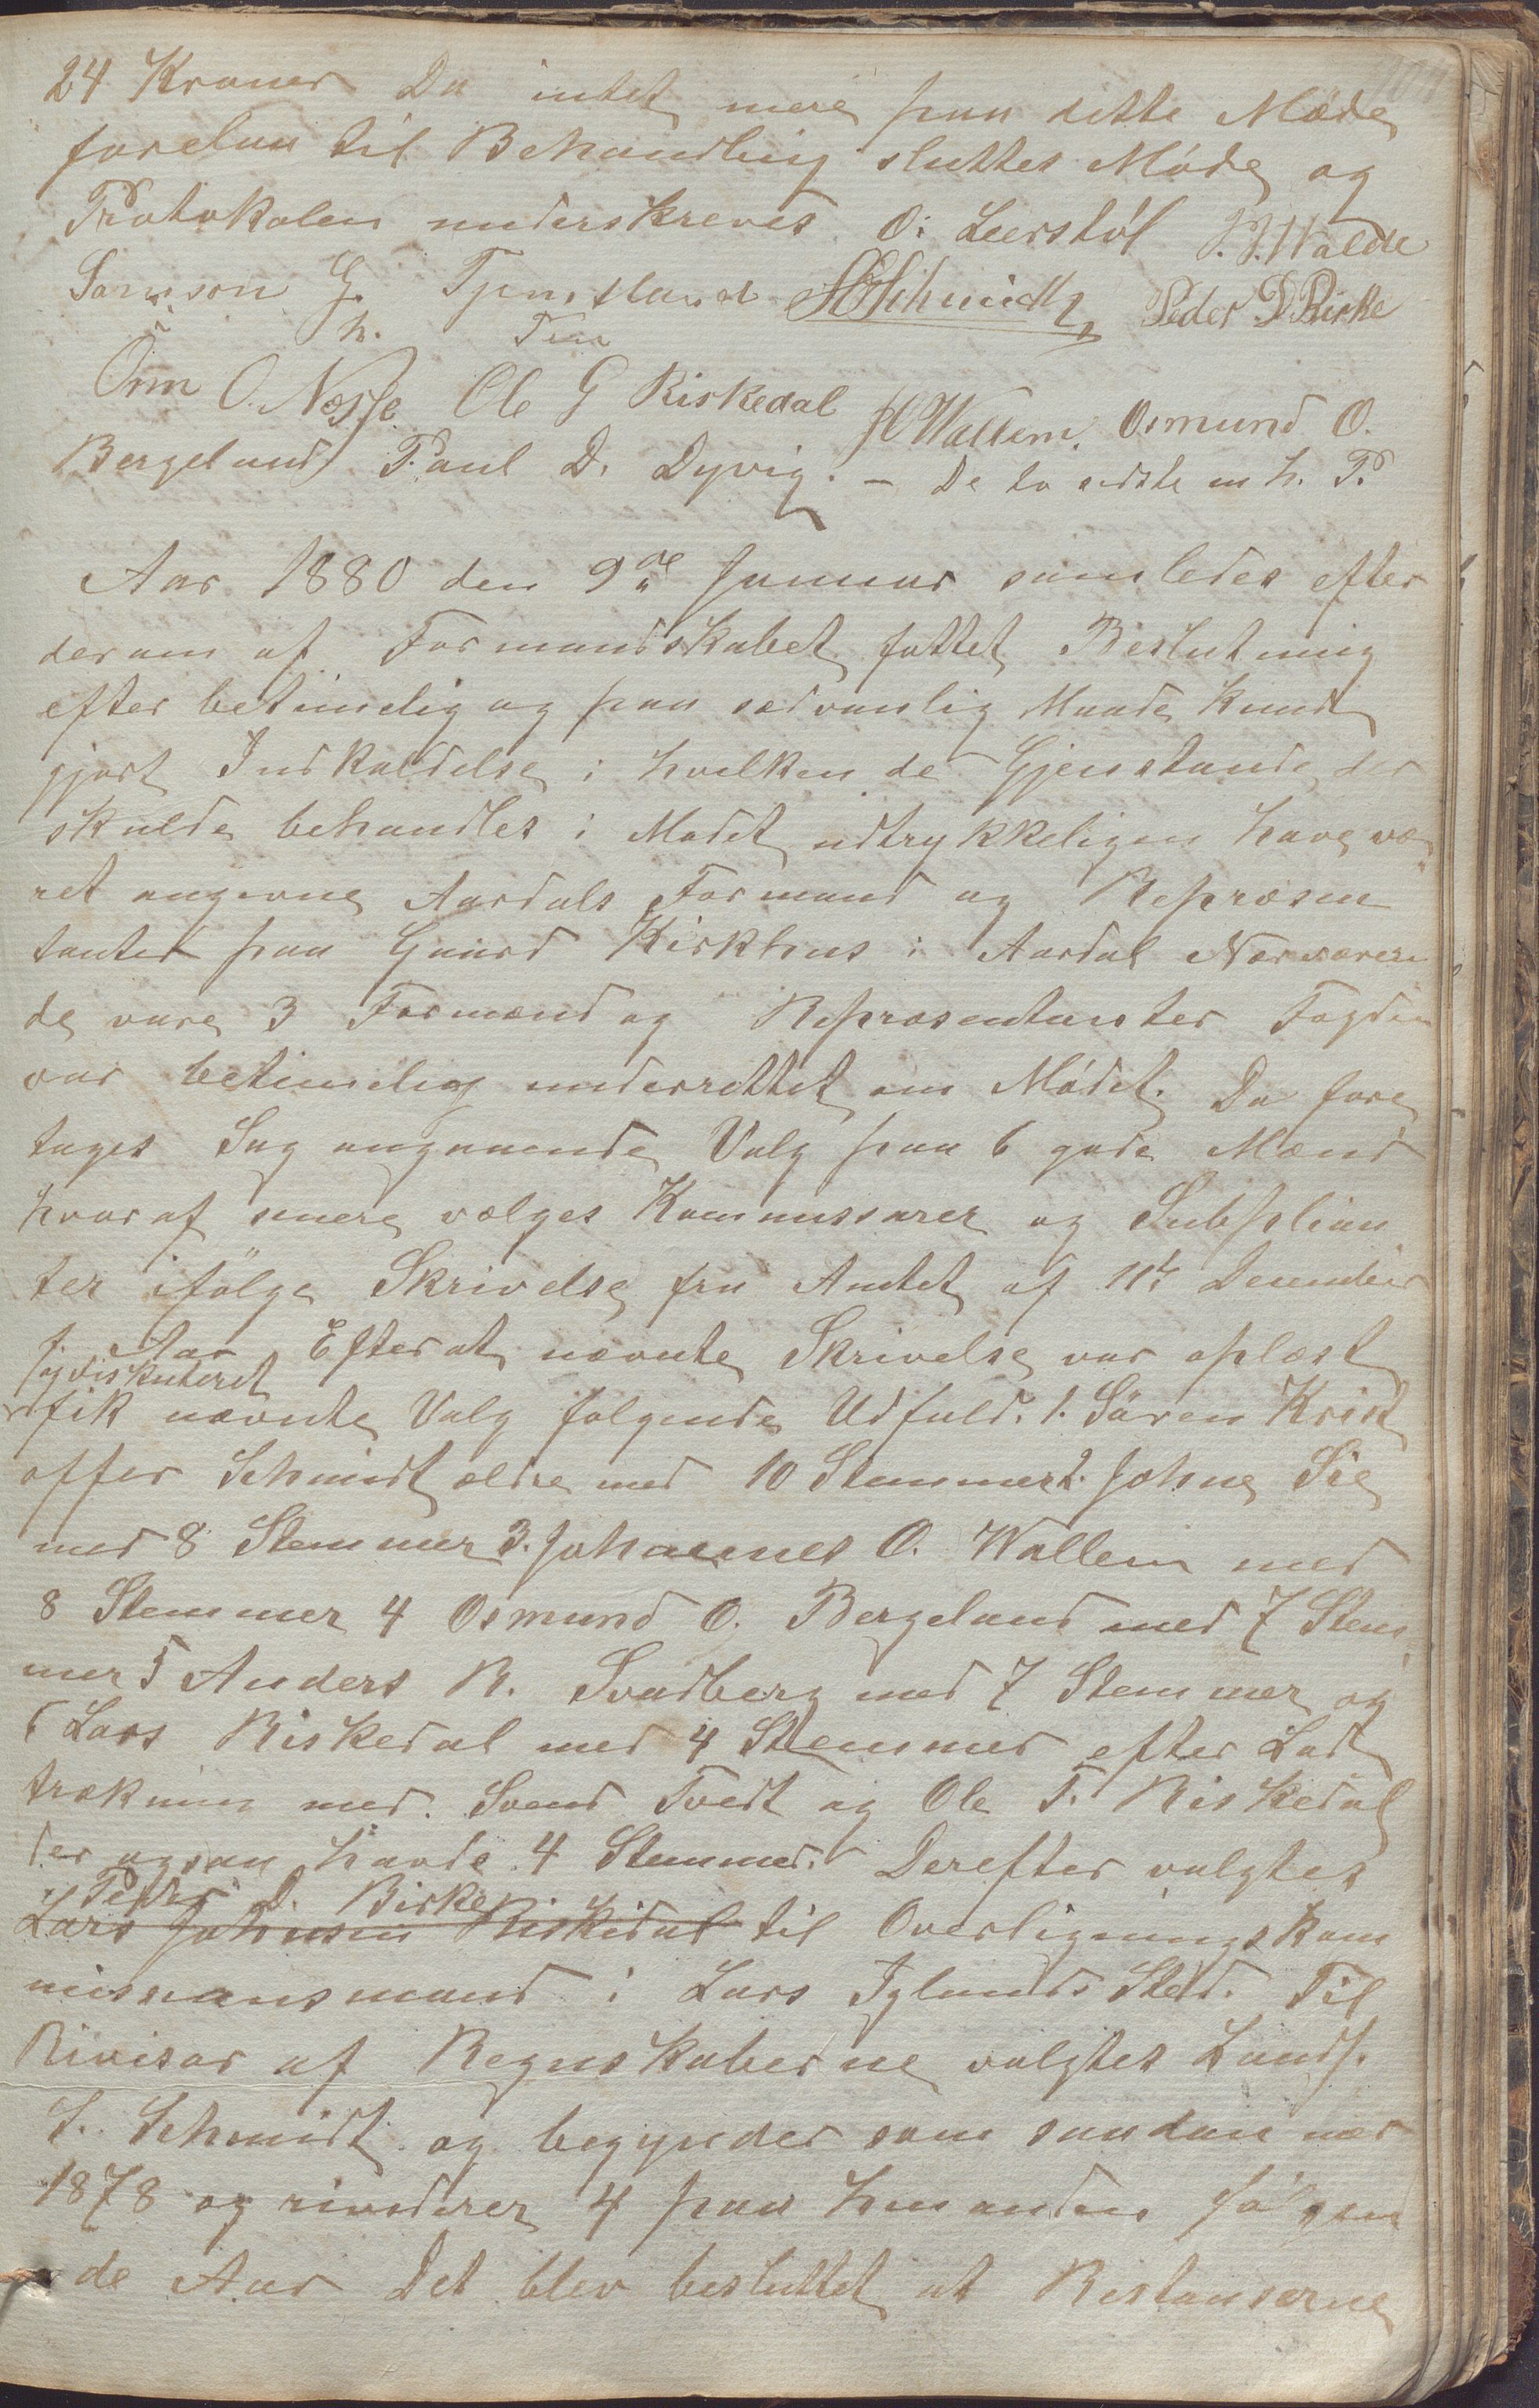 24 Kroner Da intet mere paa dette Møde
forelaa til Behandling sluttes Møde og
Protokolen underskreves. O: Leerstøl J. J. Valde
Samson G. Tjentland SCSchmidt Peder D Birke
i h. Pen
Orm O. Nesse Ole G Riskedal JOWallem. Osmund O.
Bergeland Paul D. Dyvig. – De to sidste m h. P.
Aar 1880 den 9de Januar samledes efter
derom af Formandskabet fattet Beslutning
efter betimelig og paa sædvanlig Maade kund
gjort Indkaldelse i hvilken de Gjenstande der
skulde behandles i Mødet udtrykkeligen have væ
ret angivne Aardals Formænd og Repræsen
tanter paa Gaard Kirkhus i Aardal Nærværen
de vare 3 Formænd og Repræsentanter Fogden
var betimelig underrettet om Mødet. Da fore
toges Sag angaaende Valg paa 6 gode Mænd
hvoraf senere vælges Kommissærer og Subplian
ter ifölge Skrivelse fra Amtet af 11te December
f. Aar Efterat nævnte Skrivelse var oplæst
og diskuteret
fik nævnte Valg følgende Udfald. 1. Sören Krist
offer Schmidt ældre med 10 Stemmer 2. Johne Sie
med 8 Stemmer 3. Johannes O. Wallem med
8 Stemmer 4 Osmund O. Bergeland med 7 Stem
mer 5 Anders R. Svadberg med 7 Stemmer og
6 Lars Riskedal med 4 Stemmer efter Lod
trækning med Svend Tvedt og Ole T. Riskedal
der ogsaa havde 4 Stemmer. Derefter valgtes
Peder D. Birke
Lars Johnsen Riskedal til Overligningskom
missionsmand i Lars Iglands Sted. Til
Rivisor af Regnskaberne valgtes Landh.
S. Schmidt og begynder som saadan med
1878 og rividerer 4 paa hinanden følgen
de Aar Det blev besluttet at Restanserne